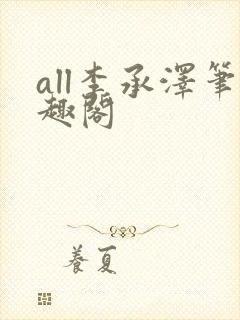 all李承澤筆
趣閣
養夏